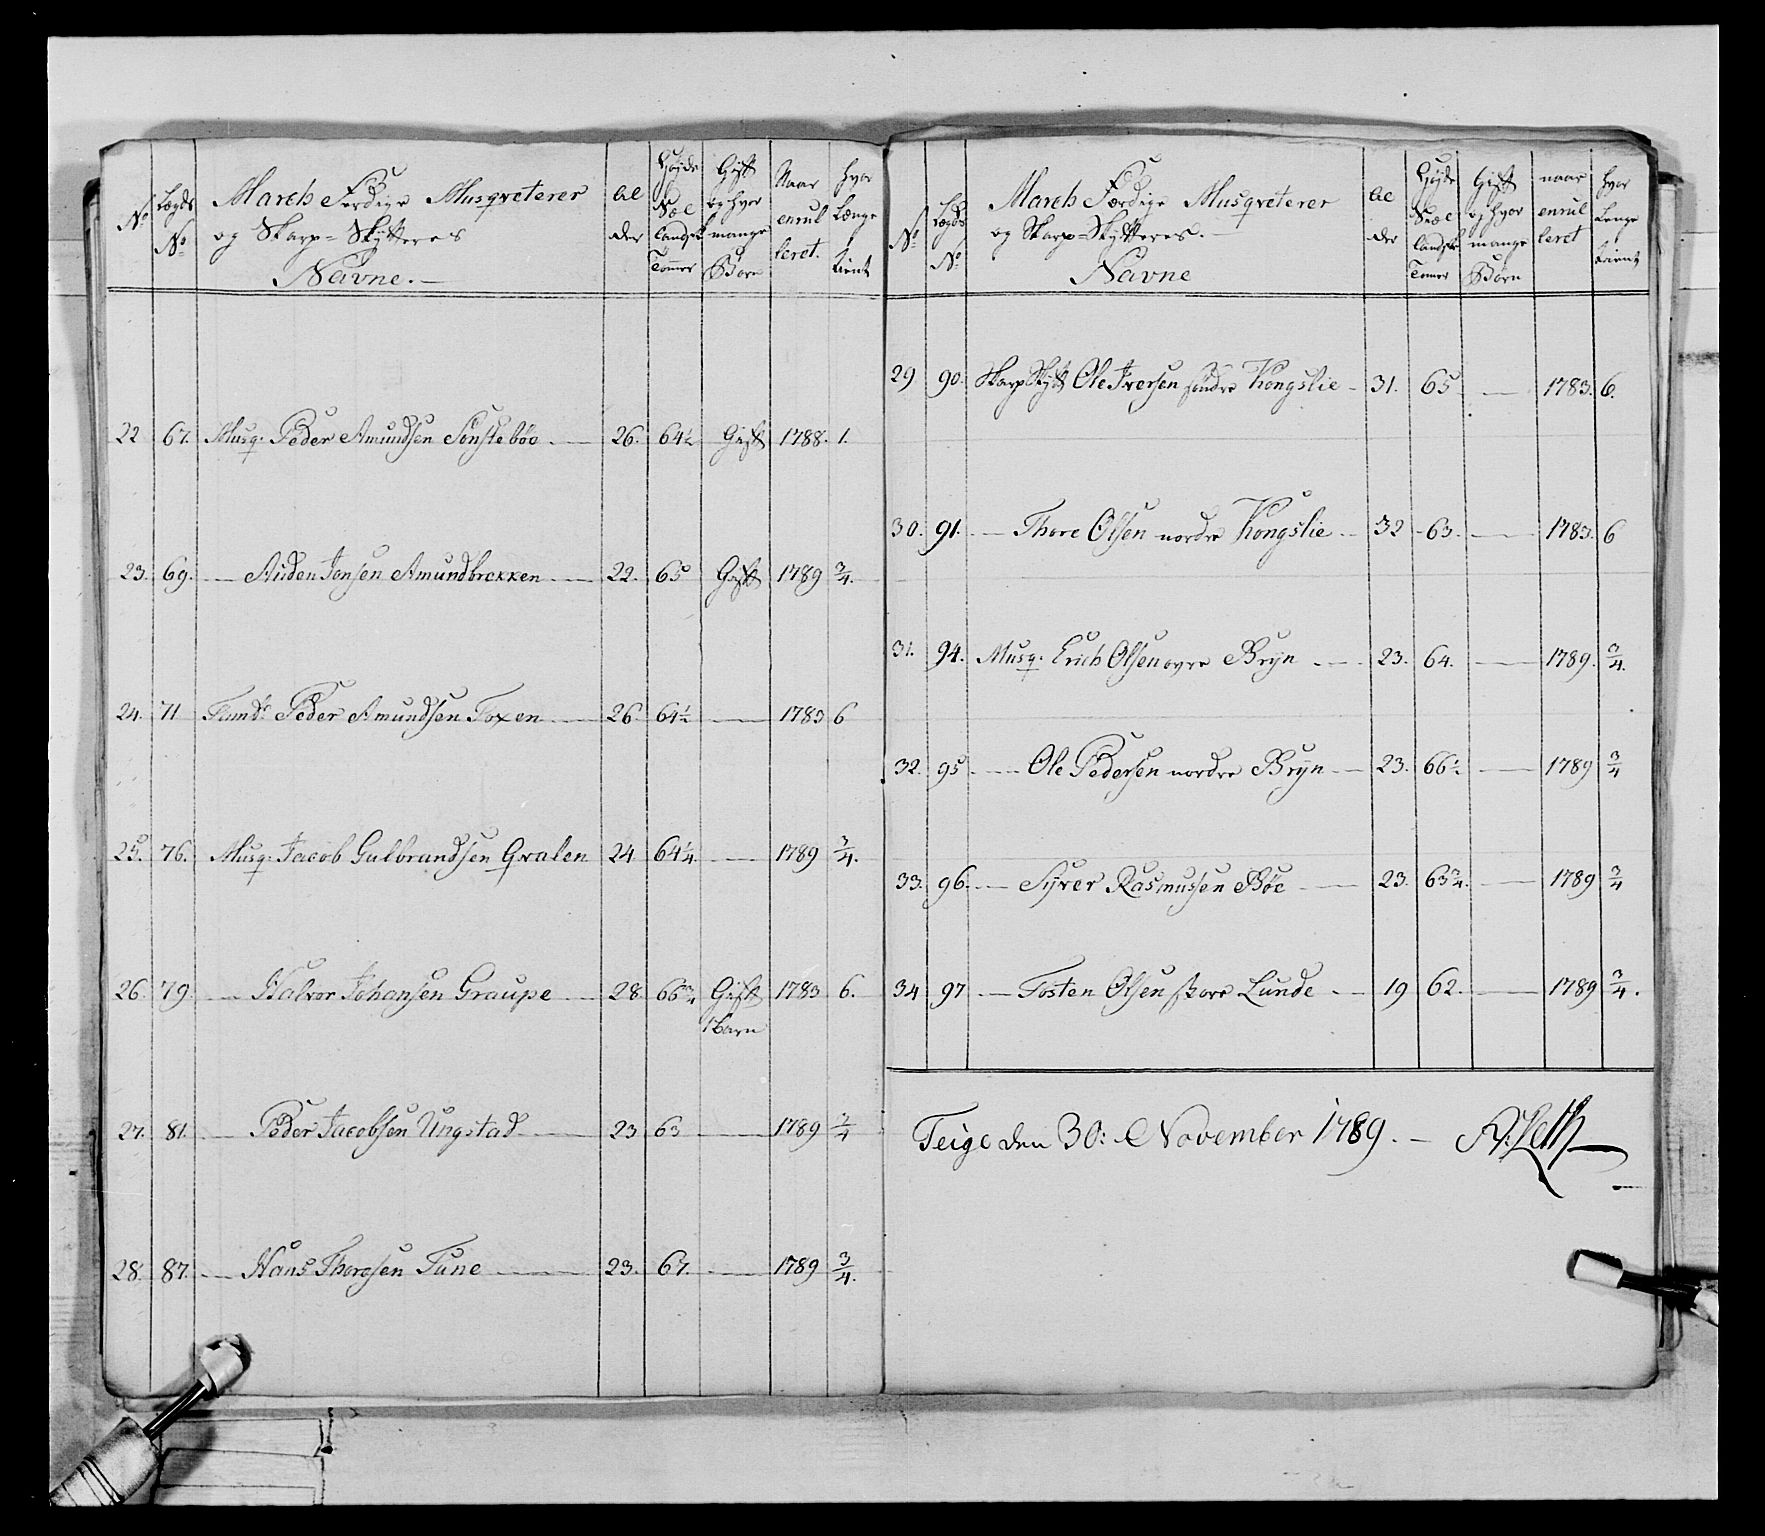 No Lægds No March Færdige Musqveterer og Skarp=Skytteres Navne.— Alder Høyde Siællandsk Tomer Gift og hvor mange Børn Naar enrulleret. hvor Længe tient
22 67. Musq. Peder Amundsen Sønstebøe — 26. 64½ Gift 1788. 1.
23. 69. — Auden Jonsen Amundbrekken — 22. 65 Gift 1789 ¾.
24. 71 Tamb. Peder Amundsen Foxen — 26. 64½ — 1783 6
25. 76. Musq. Jacob Gulbrandsen Qvalen 24 64¼. — 1789 ¾.
26. 79. — Halvor Johansen Graupe — 28. 66¾ Gift 1783 6.
1 Barn
27. 81. — Peder Jacobsen Ungstad — 23 63 — 1789 ¾
28. 87. — Hans Thoresen Tune — 23. 67. — 1789 ¾.
No Lægds No March Færdige Musqveterer og Skarp=Skytteres.— Navne Alder Høyde Siællandsk Tomer Gift og hvor mange Børn naar enrulleret hvor Lenge tient
29 90. Skarp Skytt Ole Iversen søndre Kongslie — 31. 65 — 1783. 6.
30. 91. — Thore Olsen nordre Kongslie — 32 63. — 1783. 6
31. 94. Musq. Erich Olsen øvre Bryn — 23. 64. — 1789. ¾.
32. 95 — Ole Pedersen nordre Bryn — 23. 66½ — 1789 ¾
33. 96. — Syver Rasmussen Bøe — 23. 63¾. — 1789 ¾
34 97 — Tosten Olsen store Lunde — 19 62. — 1789 ¾.
Teige den 30: November 1789. — Leth